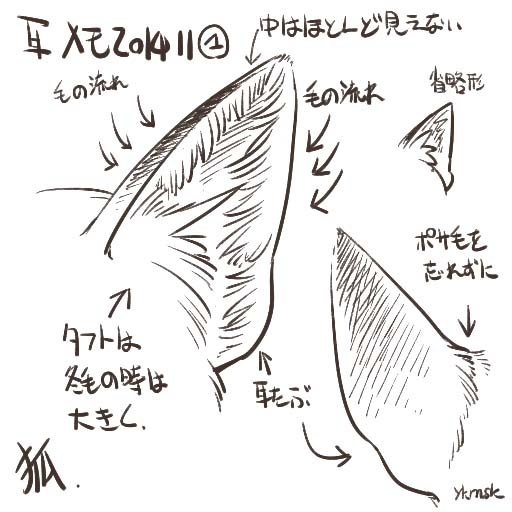 耳メモ201411①
中はほとんど見えない
毛の流れ
毛の流れ
省略形
ポサ毛を
忘れずに
タフトは
冬毛の時は
大きく.
耳たぶ
狐.
ykmsk